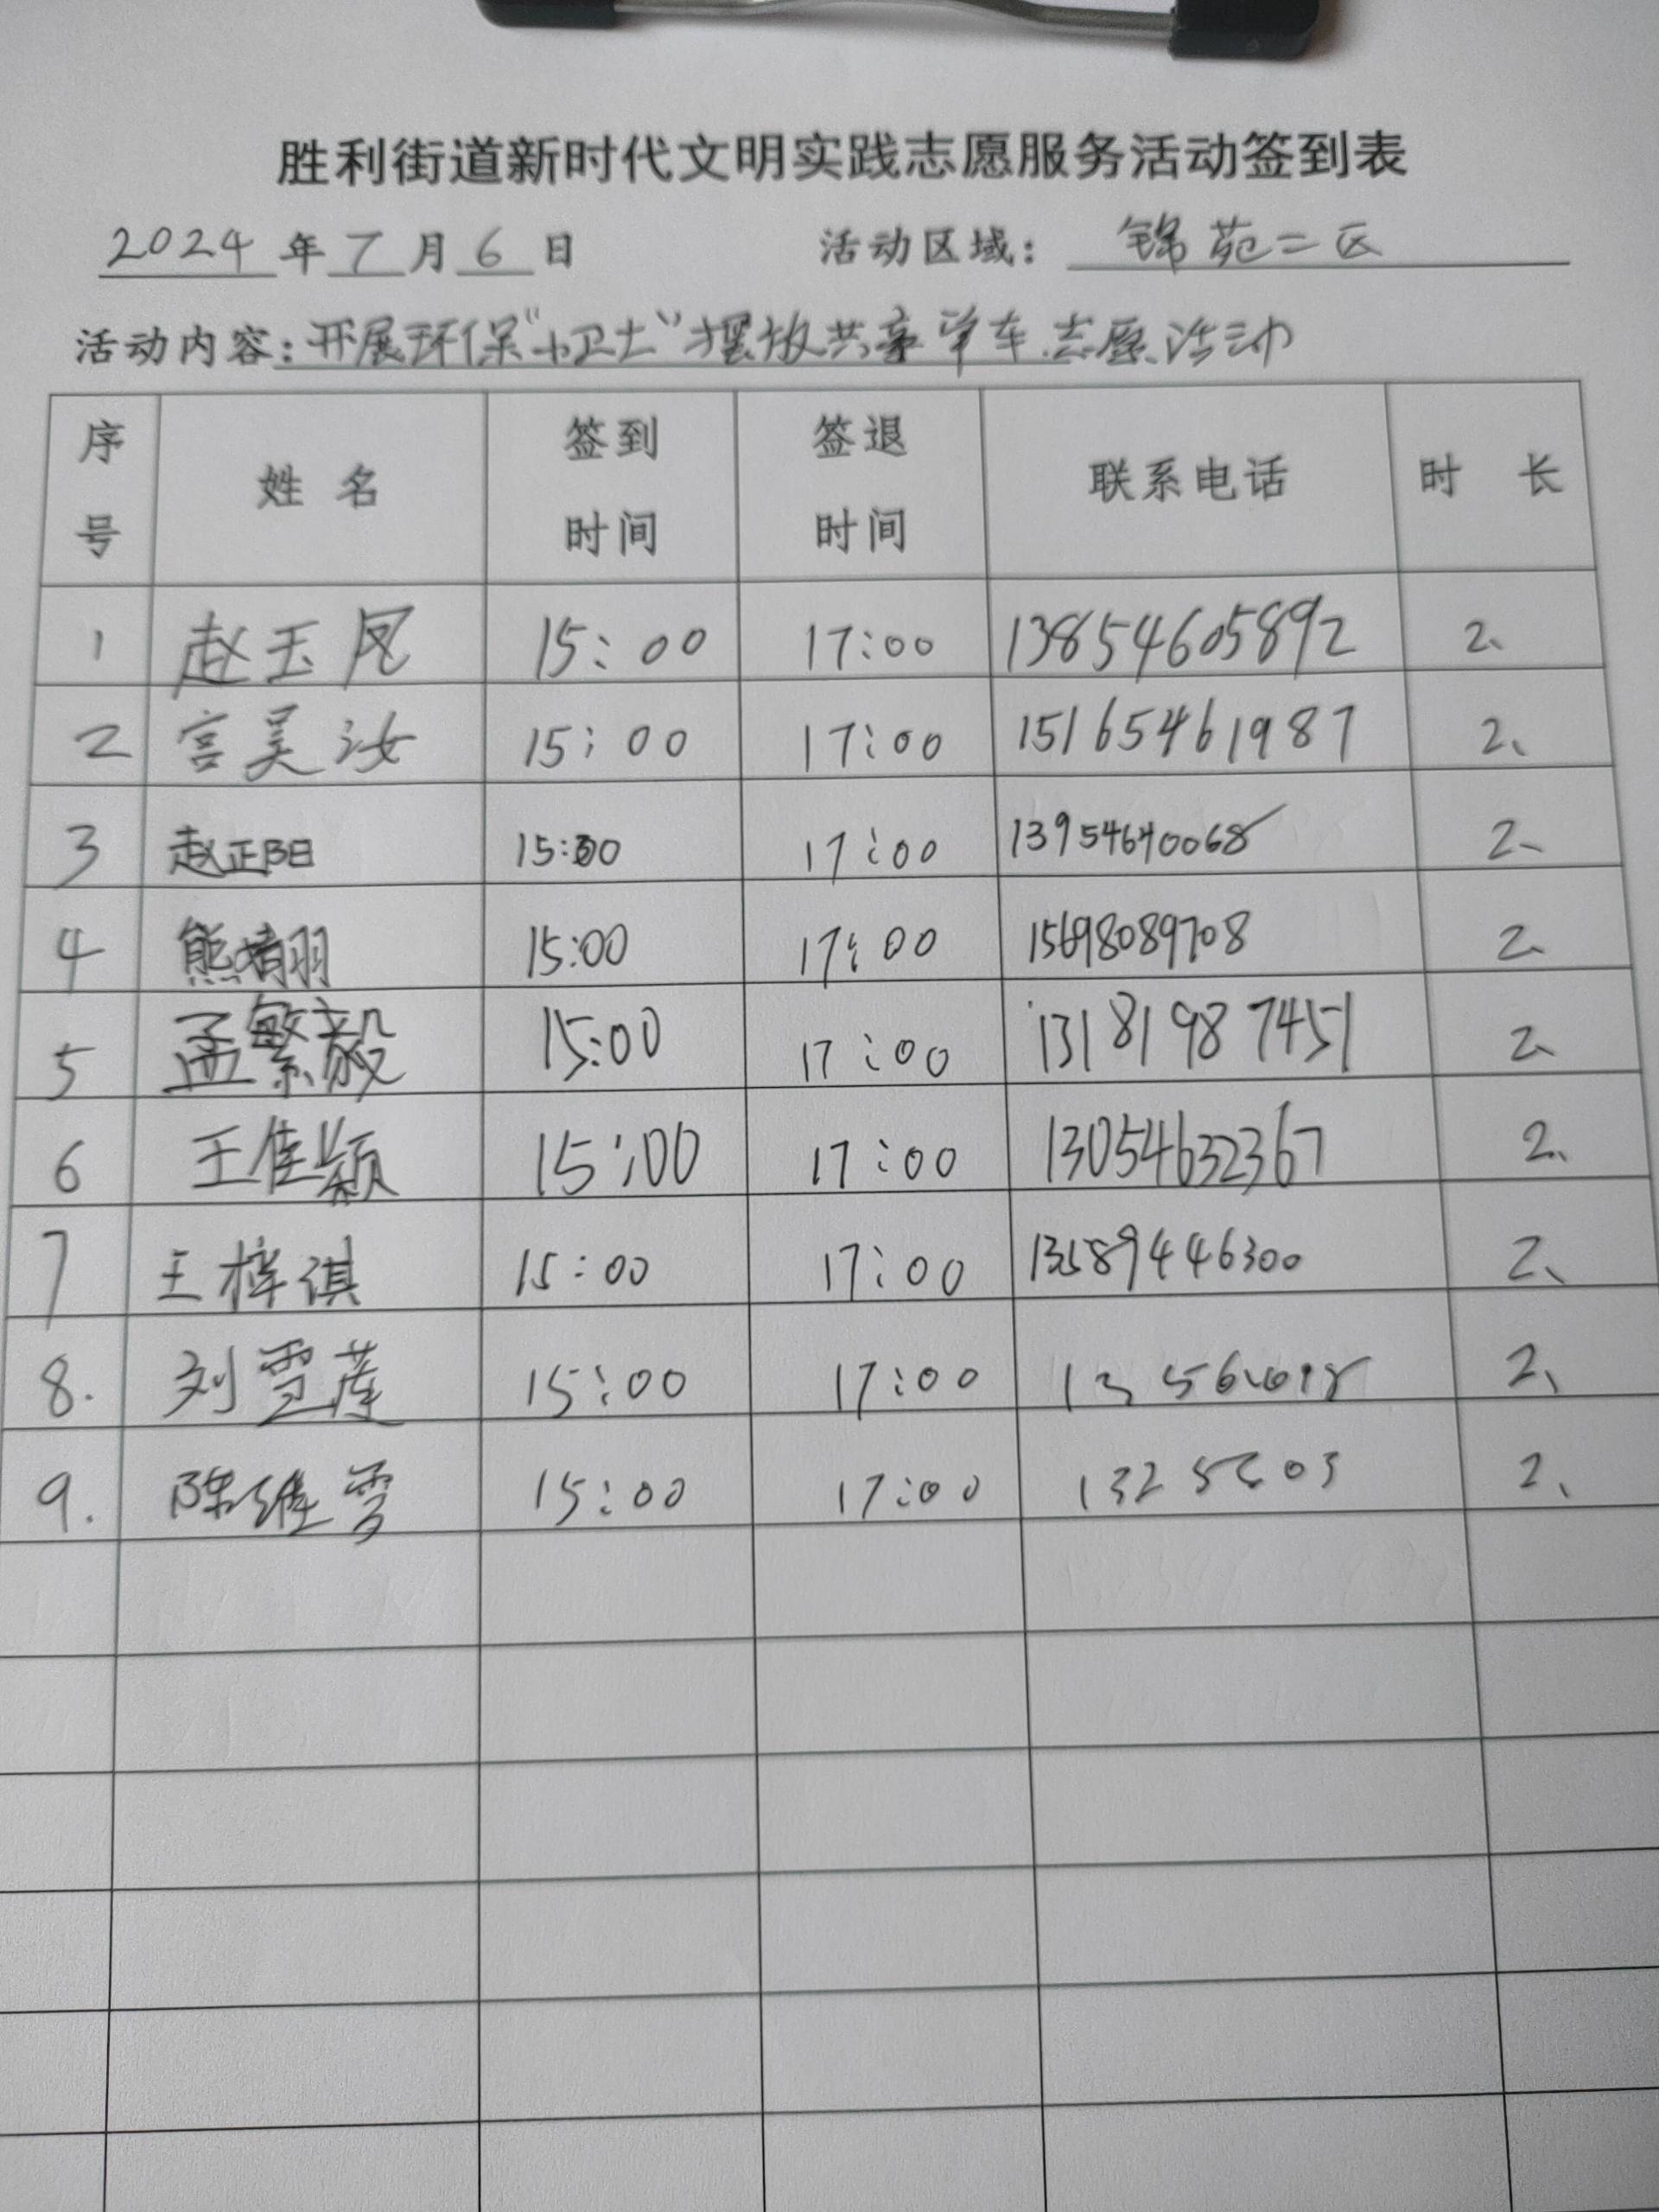 胜利街道新时代文明实践志愿服务活动签到表
2024年7月6日 活动区域：锦苑二区
活动内容：开展环保“小卫士”摆放共享单车志愿活动
序号 姓名 签到时间 签退时间 联系电话 时长
1 赵玉凤 15:00 17:00 13854605892 2、
2 宫昊汝 15:00 17:00 15165461987 2、
3 赵正阳 15:00 17:00 13954640068 2、
4 熊 羽 15:00 17:00 15698089708 2、
5 孟繁毅 15:00 17:00 13181987451 2、
6 王佳颖 15:00 17:00 13054632367 2、
7 王梓淇 15:00 17:00 13589446300 2、
8. 刘雪莲 15:00 17:00 2、
9. 陈维雪 15:00 17:00 2、